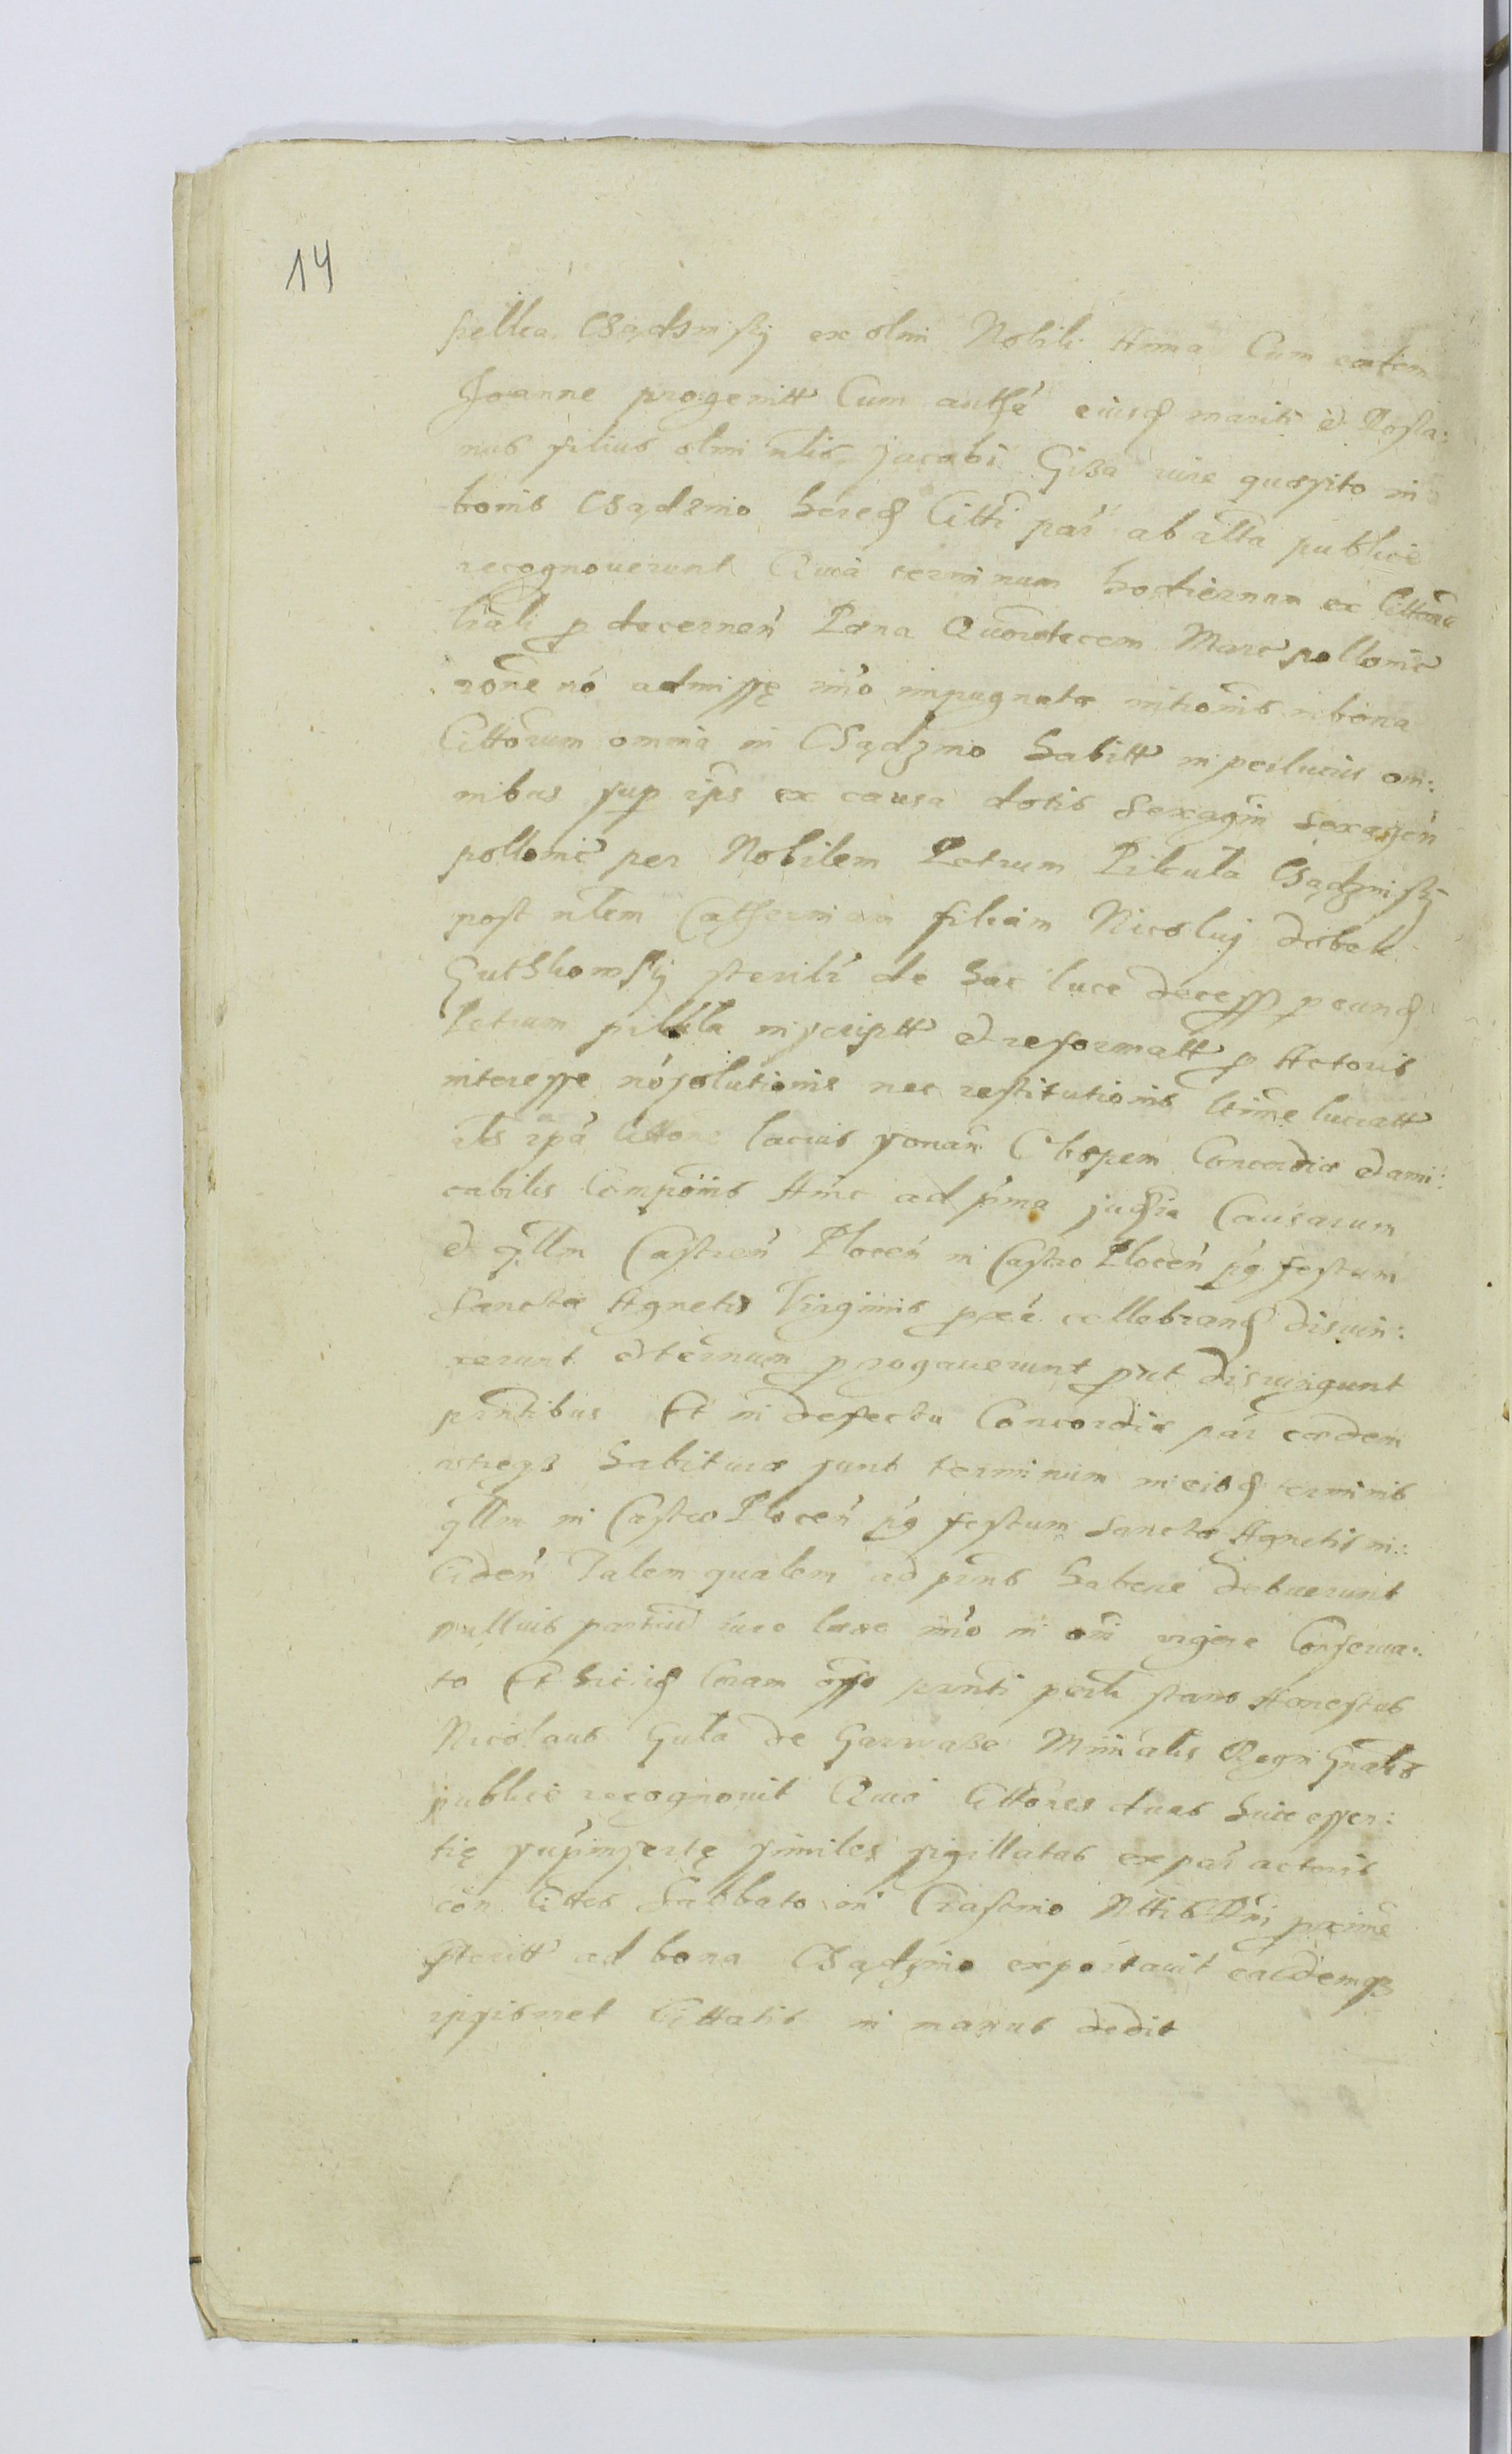 14
pellca Csądzmisky ex olim Nobili Anna Cum eadem
Joanne progenitt Cum authē eiusd mariti et Posta:
nus filius olim nlis Jacobi Giza iure quaesito in
bonis Csądzmo hered Citti par ab altta publice
recognoverunt Quia terminum hodiernum ex Cittone
liāli p decernen Pena Quordecem Marc pollonic
rone nō admissę imo impugnatae intromis in bona
Cittorum omnia in Csądzmo habitt in peculiis om:
nibus sup ips ex causa dotis Sexagin sexagen
pollonic per Nobilem Petrum Pilcula Csądzmisky
post nlem Catherinam filiam Nicolai dobek
Guthkowsky sterilē de hac luce decess p eund
Petrum pilula inscriptt et reformatt p Actoris
interesse nō solutionis nec restitutionis ltime lucratt
rls ipā Cittone lacius sonan Obspem Concordiae et ami:
cabilis Compoīnis hinc ad pma judicia Causarum
et qllm Castren Plocen in Castro Plocen pg festum
Sanctae Agnetis Virginis pxē cellebrand disiun:
xerunt et ternum progaverunt put disiungunt
pntibus Et in defectu Concordiae par eaedem
integr habiturae sunt terminum in eisd terminis
qllm in Castro Plocen pg festum Sanctae Agnetis in:
ciden Talem qualem ad pns habere debuerunt
nullius partiu iure laeso imo in oni vigore Conserva:
to Et hic id Coram offo pnti perli stans Honestus
Nicolaus Guta de Garwaze Minialis Regni Gnalis
publice recognovit Quia Cittones duas huic essen:
tię supinsertę similes sigillatas ex par actoris
con Cittos Sabbato in Crastino Nttis Dni pxime
pteritt ad bona Csądzmo exportavit easdemq
ipsismet Cittatis in manus dedit